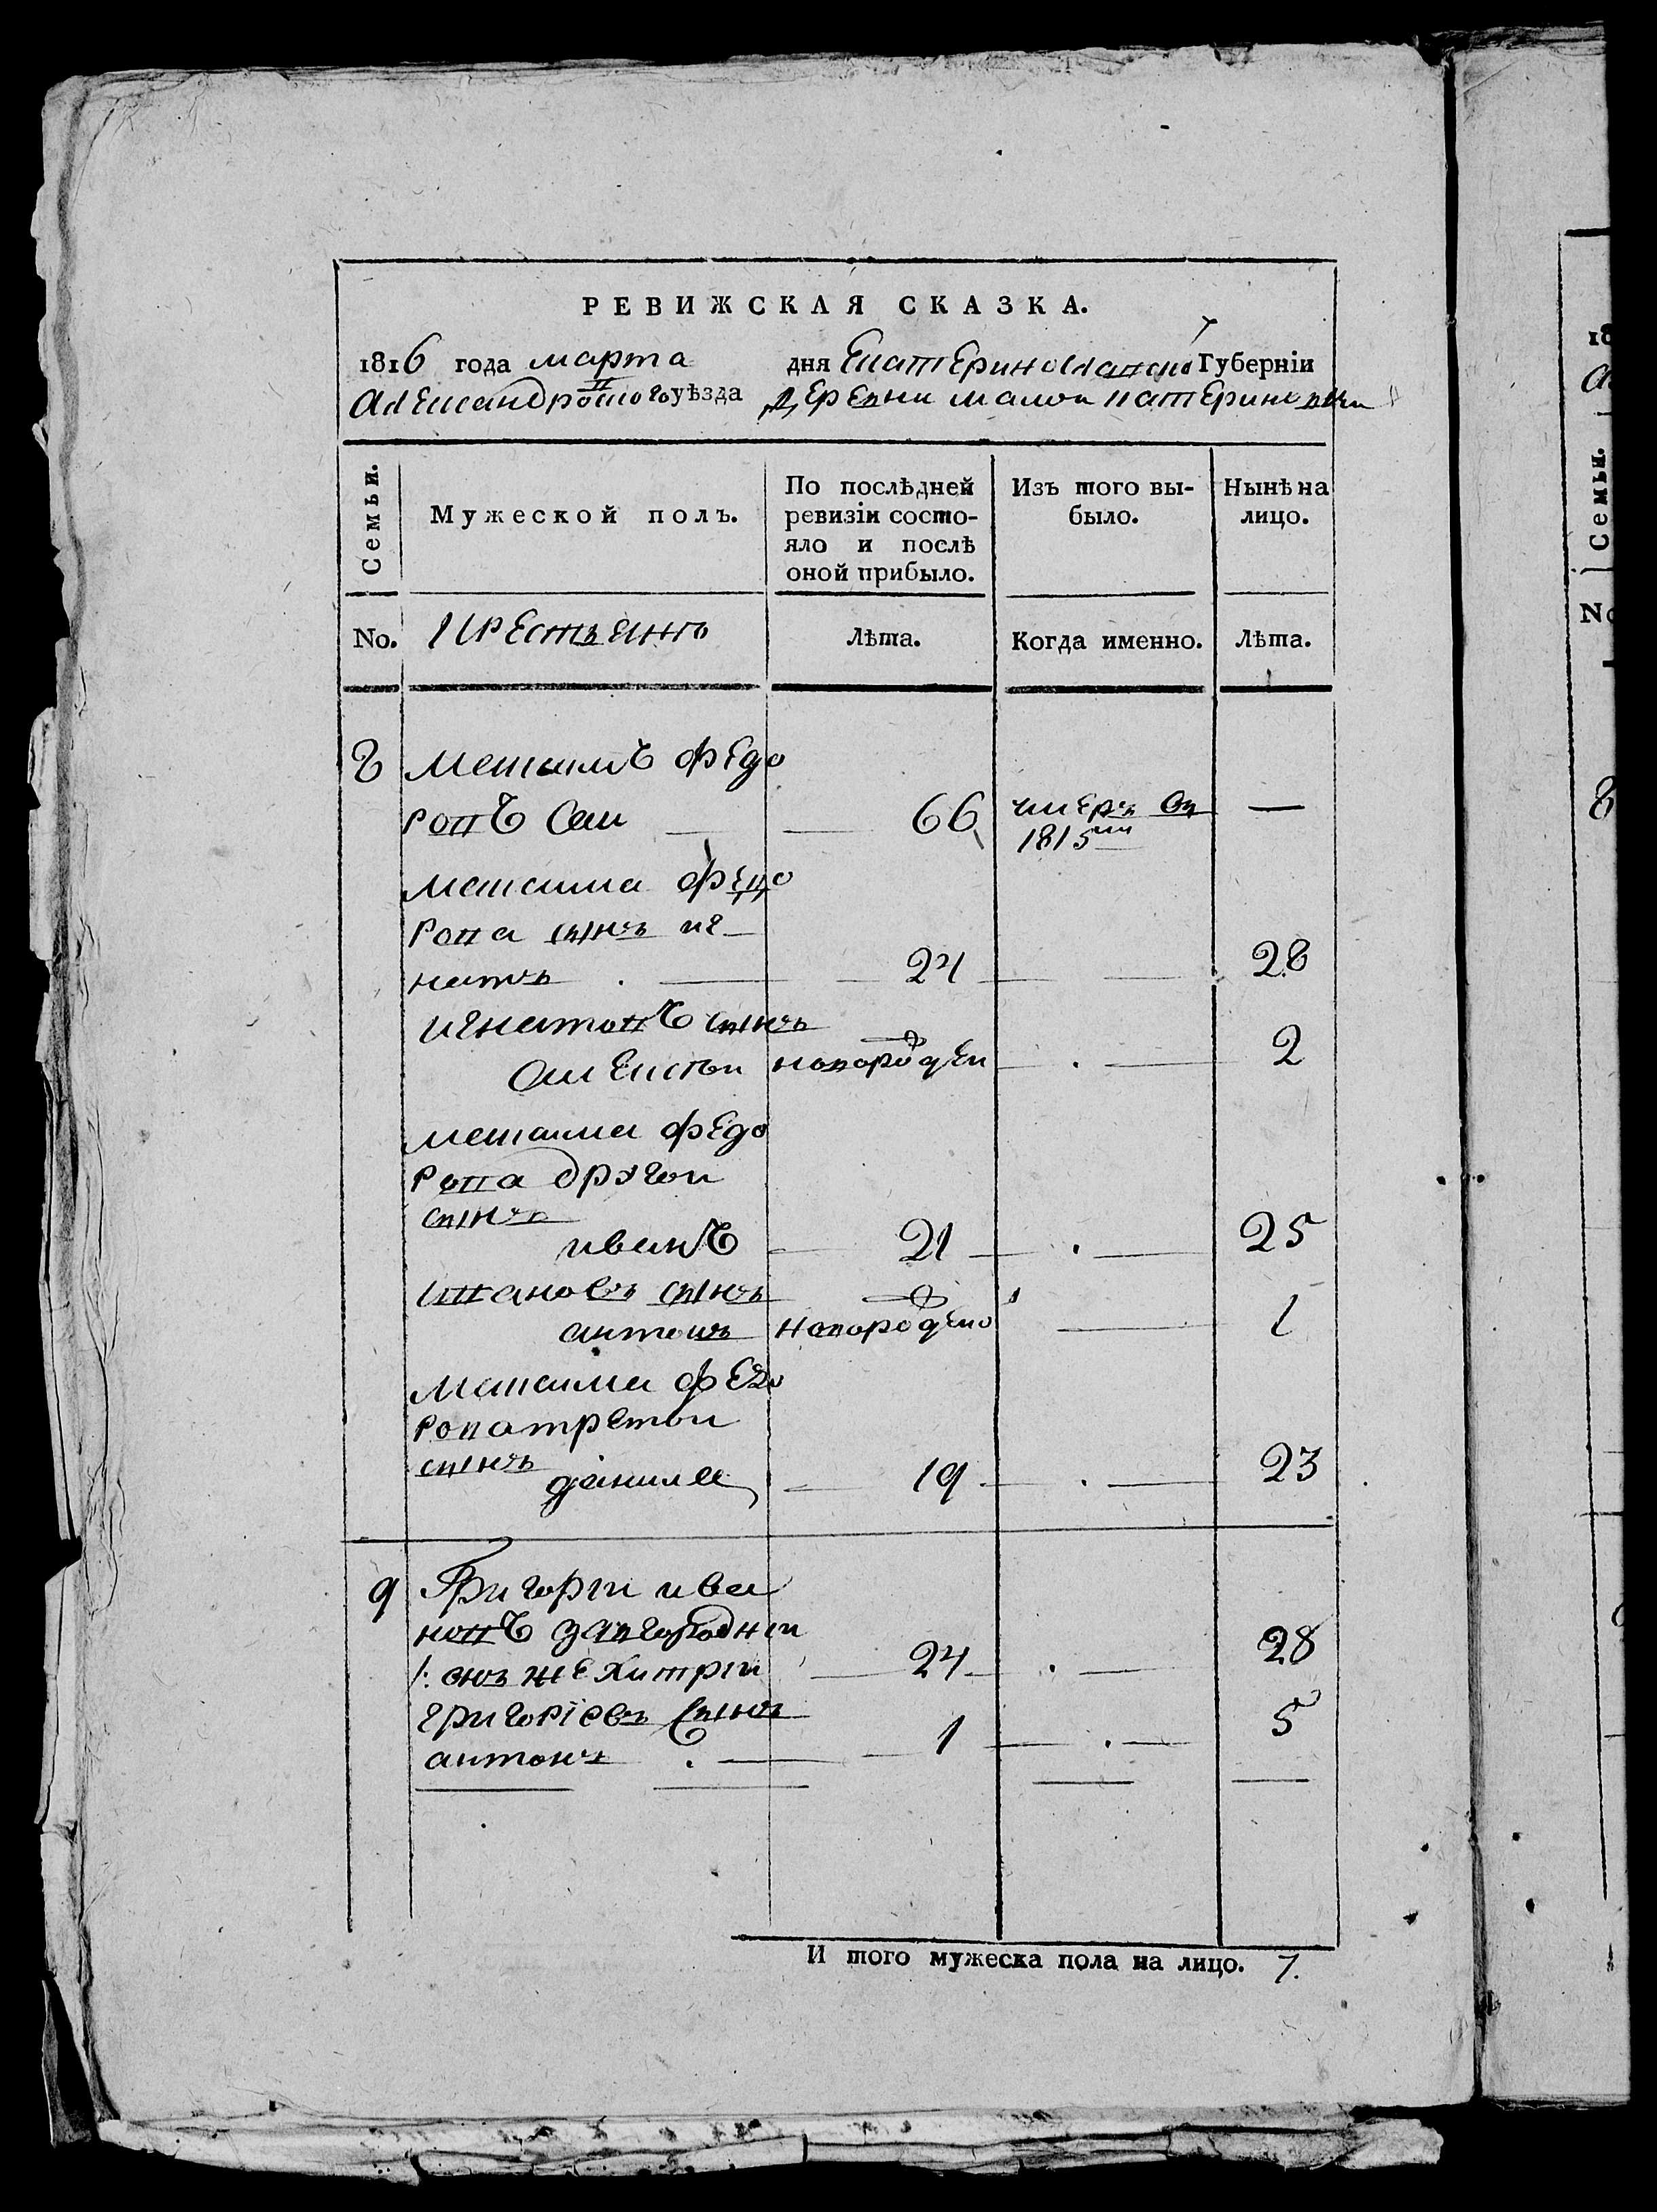 РЕВИЖСКАЯ СКАЗКА.
1816 года марта дня Екатеринославской Губерніи
Александровского уѣзда деревни малой катериновки
Семьи.
Мужеской полъ.
По послѣдней ревизіи состо-
яло и послѣ
оной прибыло.
Изъ того вы-
было.
Нынѣ на
лицо.
No. Крестьянъ Лѣта. Когда именно. Лѣта.
8 Максимъ федо
ровъ 66 умеръ въ —
1815мъ
Максима федо
рова сынъ иг
натъ 24 28
игнатовъ сынъ
Алексѣй новорожден 2
максима федо
рова другой
сынъ
иванъ 21 25
ивановъ сынъ
антонъ новорожден 1
Максима федо
рова третой
сынъ
данила 19 23
9 Григорій ива
новъ
/: онъ же хитрій 24 28
григоріевъ сынъ
антонъ 1 5
И того мужеска пола на лицо. 7.
18
Семьи.
No
8